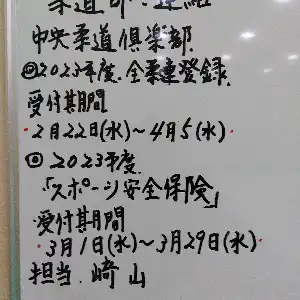 柔道部:連絡
中央柔道倶楽部
◎2023年度.全柔連登録.
受付期間
・2月22日(水)～4月5(水)・
◎2023年度.
「スポーツ安全保険」
受付期間
・3月1日(水)～3月29日(水)・
担当.崎山